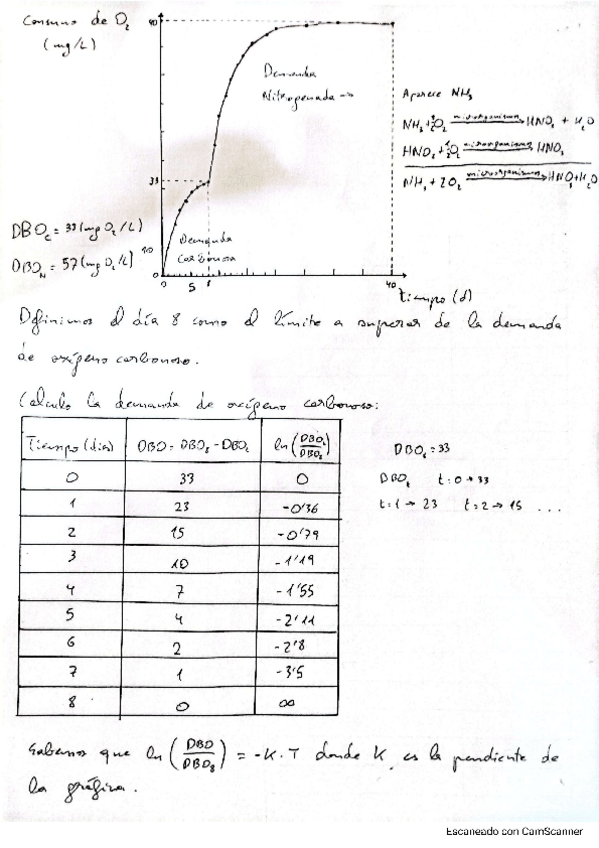 Consumo de O₂
(mg/L)
90
Demanda
Nitrogenada →
Aparece NH₃
NH₃ + 3/2 O₂ microorganismos → HNO₂ + H₂O
HNO₂ + 1/2 O₂ microorganismos → HNO₃
NH₃ + 2O₂ microorganismos → HNO₃ + H₂O
33
DBO_C = 33 (mg O₂/L)
DBO_N = 57 (mg O₂/L)
10
Demanda
Carbonosa
0
0 5 8 40
tiempo (d)
Definimos el día 8 como el límite a superar de la demanda
de oxígeno carbonoso.
Calculo la demanda de oxígeno carbonoso:
Tiempo (días) DBO = DBO₈ - DBOₜ ln(DBOₜ/DBO₈)
0 33 0
1 23 -0'36
2 15 -0'79
3 10 -1'19
4 7 -1'55
5 4 -2'11
6 2 -2'8
7 1 -3'5
8 0 ∞
DBO₈ = 33
DBOₜ t=0→33
t=1→23 t=2→15 ...
Sabemos que ln(DBO/DBO₈) = -K·T donde K es la pendiente de
la gráfica.
Escaneado con CamScanner